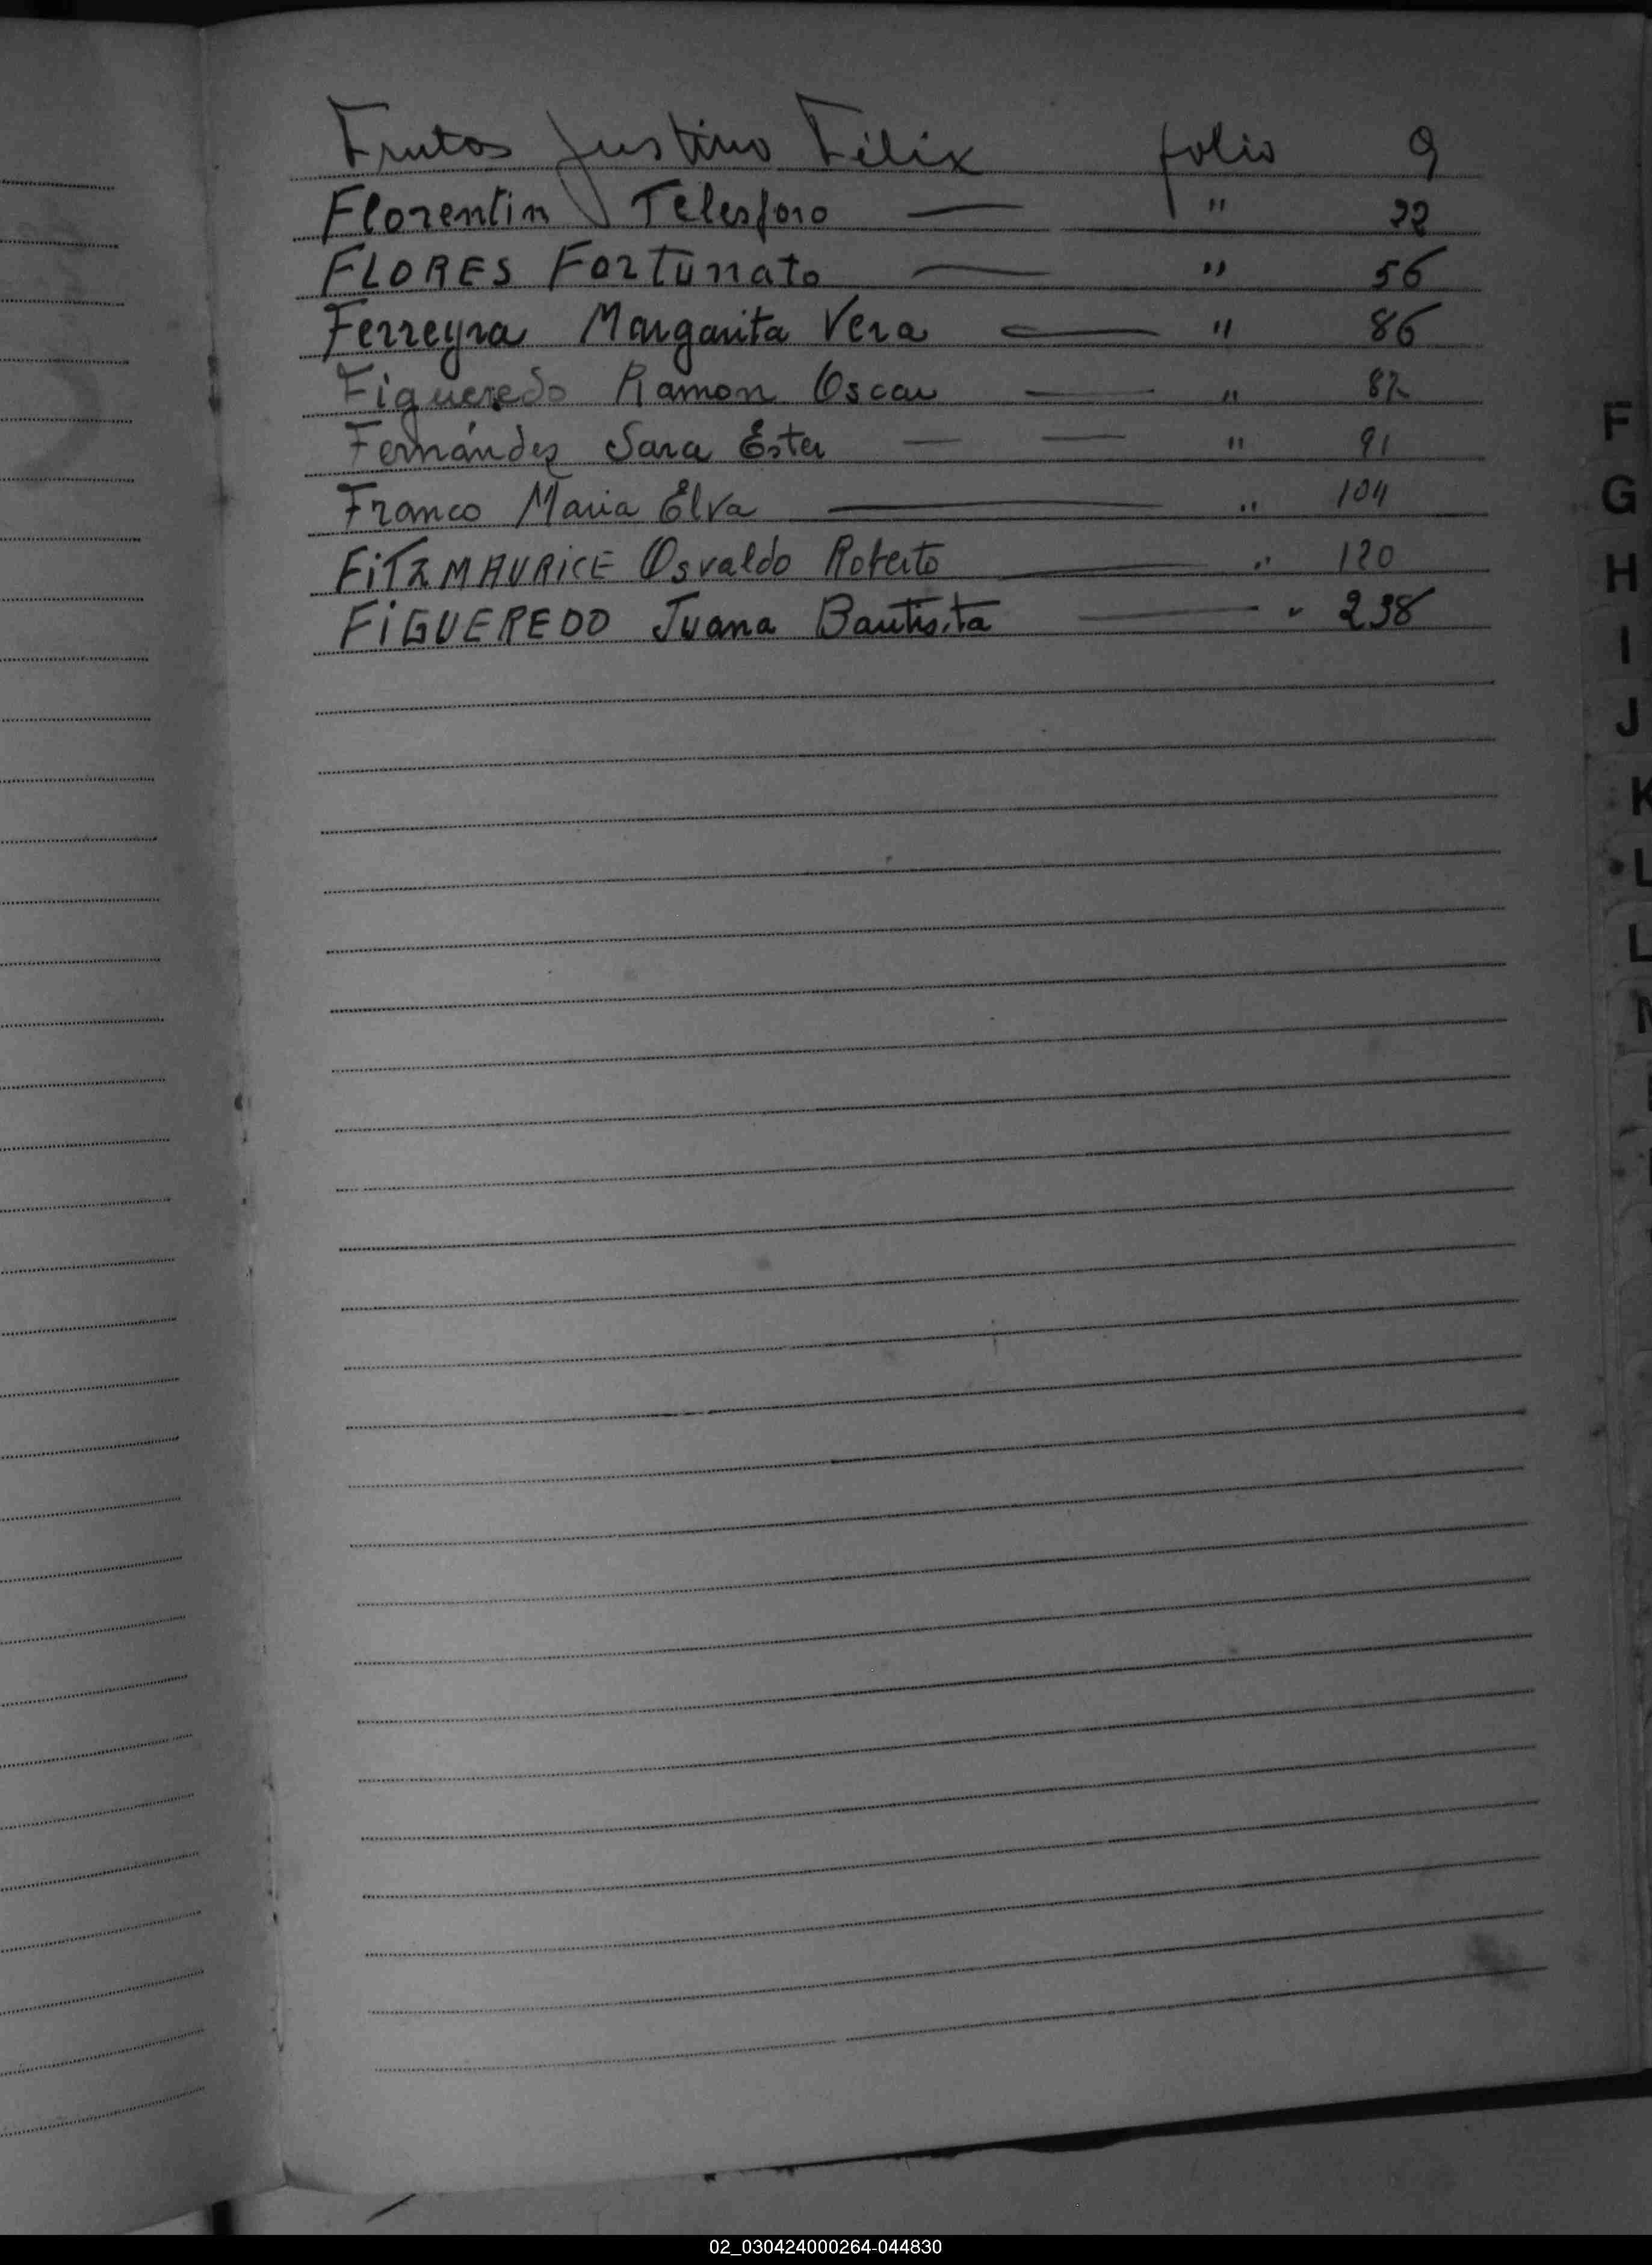 Frutos Justino Félix folio 9
Florentin Telesforo — " 22
FLORES Fortunato — " 56
Ferreyra Margarita Vera — " 86
Figueredo Ramon Oscar — " 87
Fernández Sara Ester — — " 91
Franco Maria Elva — " 104
FiTZMAURiCE Osvaldo Roberto — " 120
FiGUEREDO Juana Bautista — " 238
F
G
H
I
J
K
L
L
02_030424000264-044830